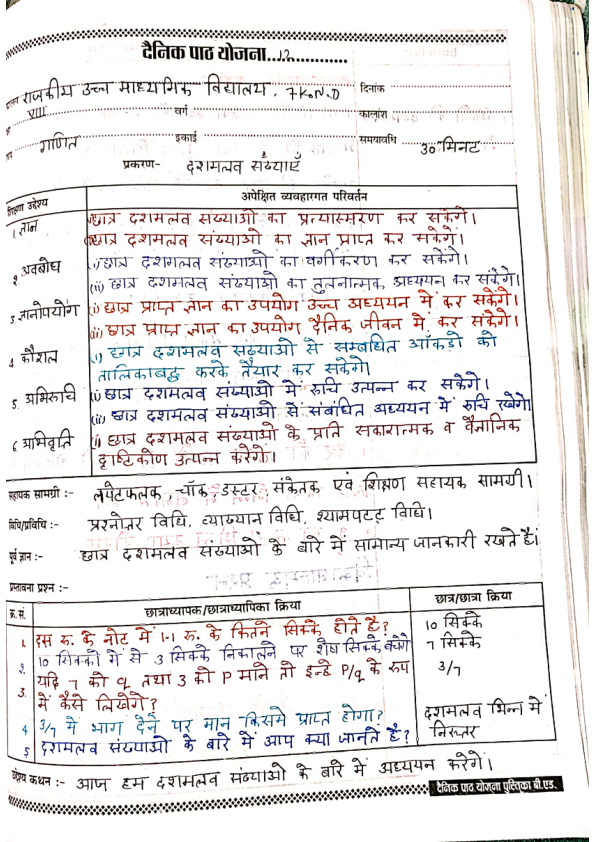 दैनिक पाठ योजना...12............
राजकीय उच्च माध्यमिक विद्यालय, 7K.N.D दिनांक
VIII वर्ग कालांश
गणित इकाई समयावधि 30 मिनट
प्रकरण- दशमलव संख्याएँ
शिक्षण उद्देश्य अपेक्षित व्यवहारगत परिवर्तन
1. ज्ञान (i) छात्र दशमलव संख्याओं का प्रत्यास्मरण कर सकेंगे।
(ii) छात्र दशमलव संख्याओं का ज्ञान प्राप्त कर सकेंगे।
2. अवबोध (i) छात्र दशमलव संख्याओं का वर्गीकरण कर सकेंगे।
(ii) छात्र दशमलव संख्याओं का तुलनात्मक अध्ययन कर सकेंगे।
3. ज्ञानोपयोग (i) छात्र प्राप्त ज्ञान का उपयोग उच्च अध्ययन में कर सकेंगे।
(ii) छात्र प्राप्त ज्ञान का उपयोग दैनिक जीवन में कर सकेंगे।
4. कौशल (i) छात्र दशमलव संख्याओं से सम्बंधित आँकडो को
तालिकाबद्ध करके तैयार कर सकेंगे।
5. अभिरुचि (i) छात्र दशमलव संख्याओ में रुचि उत्पन्न कर सकेंगे।
(ii) छात्र दशमलव संख्याओ से संबंधित अध्ययन में रुचि रखेंगे।
6. अभिवृति (i) छात्र दशमलव संख्याओ के प्रति सकारात्मक व वैज्ञानिक
दृष्टिकोण उत्पन्न करेंगे।
सहायक सामग्री :- लपेटफलक, चॉक, डस्टर, संकेतक एवं शिक्षण सहायक सामग्री।
विधि/प्रविधि :- प्रश्नोतर विधि, व्याख्यान विधि, श्यामपटट विधि।
पूर्व ज्ञान :- छात्र दशमलव संख्याओं के बारे में सामान्य जानकारी रखते है।
प्रस्तावना प्रश्न :-
क्र.सं. छात्राध्यापक/छात्राध्यापिका क्रिया छात्र/छात्रा क्रिया
1. दस रु. के नोट में 1-1 रु. के कितने सिक्के होते है? 10 सिक्के
2. 10 सिक्कों में से 3 सिक्के निकालने पर शेष सिक्के बचेंगे 7 सिक्के
3. यदि 7 को q तथा 3 को P माने तो इन्हे P/q के रूप 3/7
में कैसे लिखेंगे?
4 3/7 में भाग देने पर मान किसमे प्राप्त होगा? दशमलव भिन्न में
5 दशमलव संख्याओ के बारे में आप क्या जानते है? निरूतर
उद्देश्य कथन :- आज हम दशमलव संख्याओ के बारे में अध्ययन करेंगे।
दैनिक पाठ योजना पुस्तिका बी.एड.